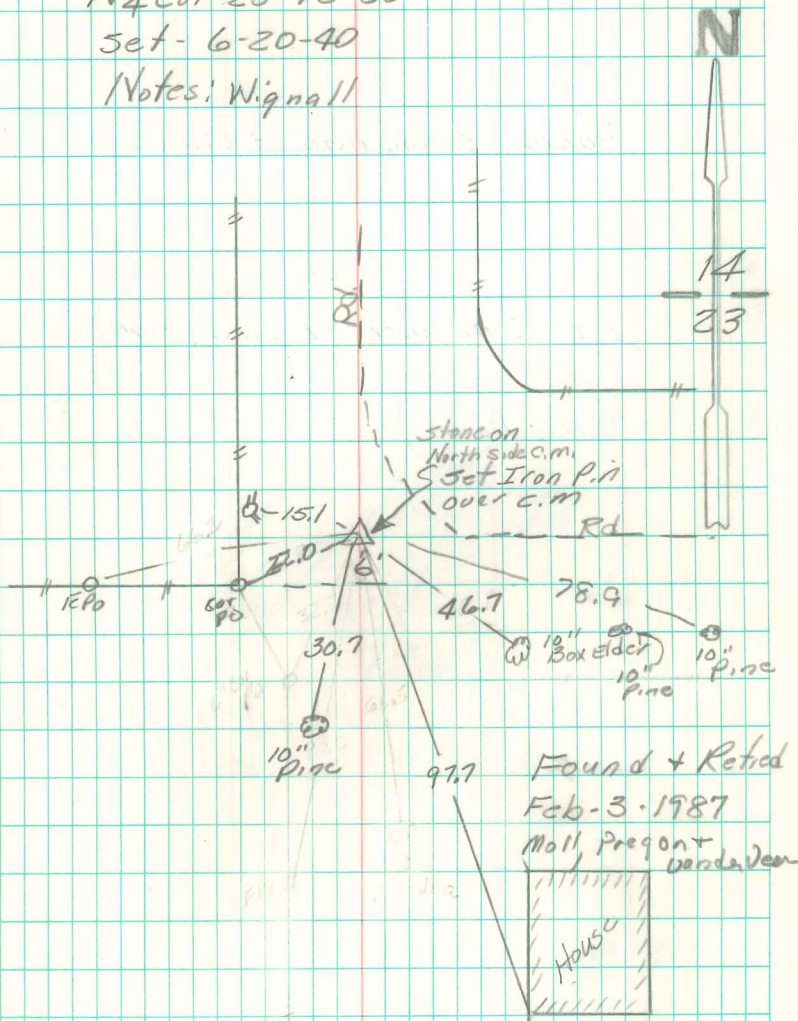 set - 6-20-40
Notes: Wignall
N
14
23
Rd
stone on
North side c.m.
Set Iron Pin
over c.m
Rd
15.1
6'
46.7
78.9
30.7
97.7
10"
Box Elder
10"
Pine
10"
Pine
10"
Pine
cor
po
Found & Retied
Feb-3-1987
Moll, Pregon +
VanderVeen
House